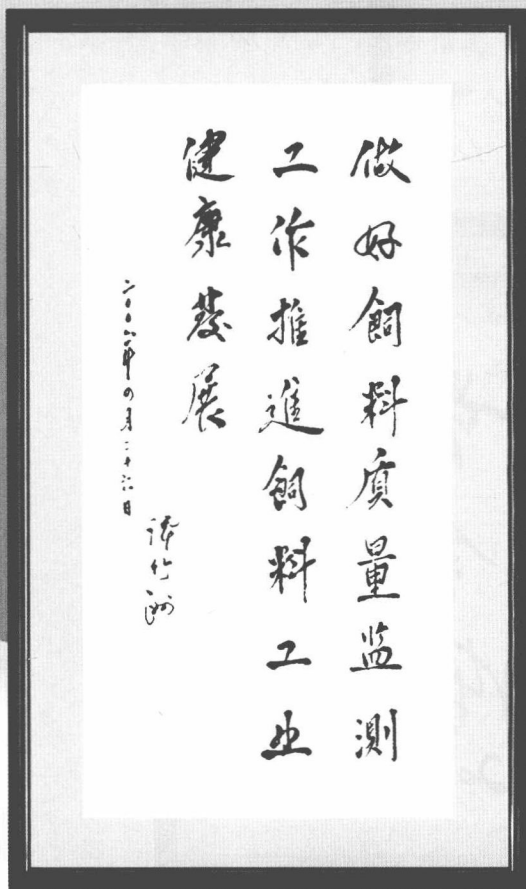 做好飼料质量监测
工作推進飼料工业
健康發展
二〇〇六年四月二十六日
谭竹洲